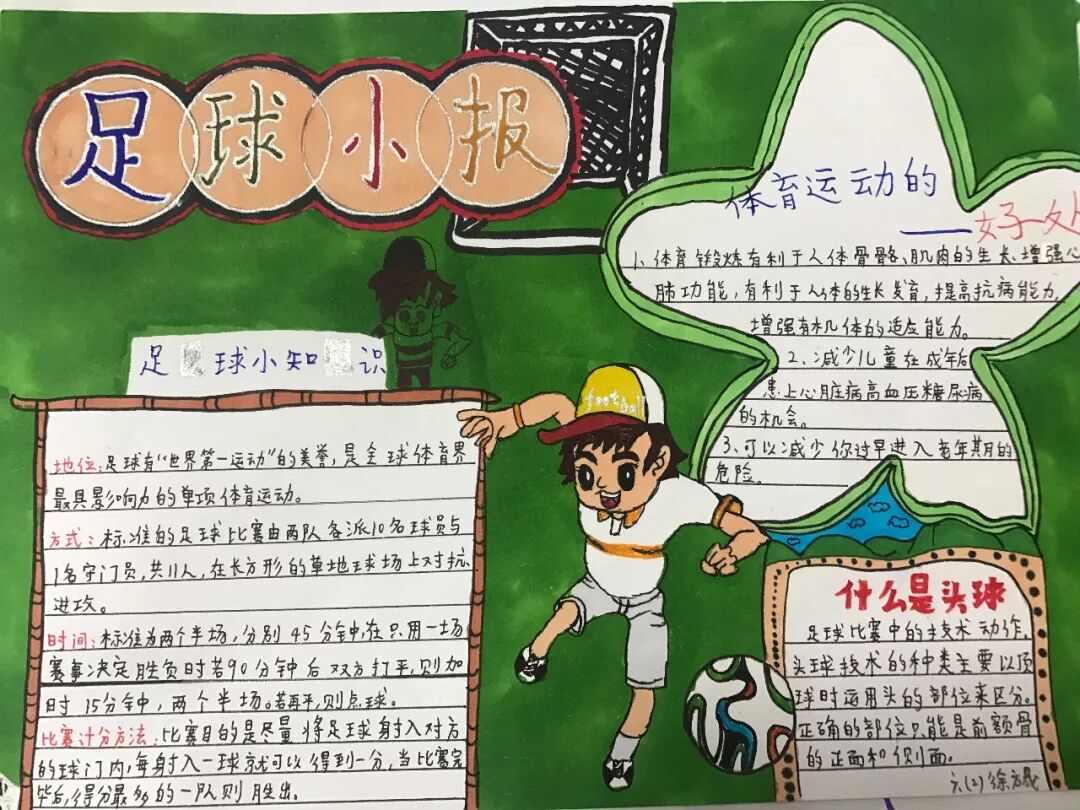 足球小报
足球小知识
地位：足球有“世界第一运动”的美誉，是全球体育界
最具影响力的单项体育运动。
方式：标准的足球比赛由两队各派10名球员与
1名守门员，共11人，在长方形的草地球场上对抗、
进攻。
时间：标准为两个半场，分别45分钟，在只用一场
赛事决定胜负时若90分钟后双方打平，则加
时15分钟，两个半场。若再平，则点球。
比赛计分方法：比赛目的是尽量将足球射入对方
的球门内，每射入一球就可以得到一分，当比赛完
毕后，得分最多的一队则胜出。
football
体育运动的
——好处
1、体育锻炼有利于人体骨骼、肌肉的生长、增强心
肺功能，有利于人体的生长发育，提高抗病能力，
增强有机体的适应能力。
2、减少儿童在成年后
患上心脏病高血压糖尿病
的机会。
3、可以减少你过早进入老年期的
危险。
什么是头球
足球比赛中的技术动作，
头球技术的种类主要以顶
球时运用头的部位来区分。
正确的部位只能是前额骨
的正面和侧面。
六(2)徐